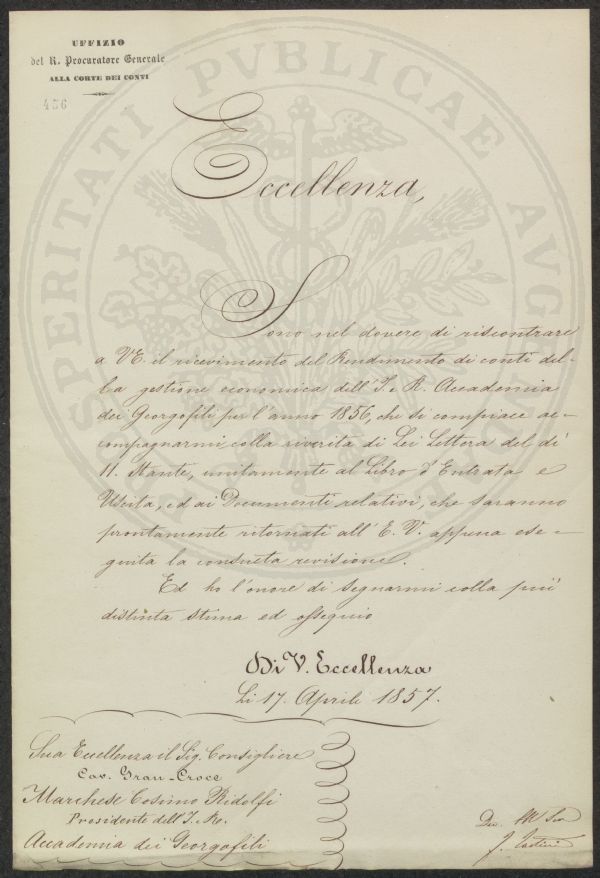 UFFIZIO
del R. Procuratore Generale
ALLA CORTE DEI CONTI
456
Eccellenza,
Sono nel dovere di riscontrare
a V.E. il ricevimento del Rendimento di conti del-
la gestione economica dell'I. e R. Accademia
dei Georgofili per l'anno 1856, che si compiace ac-
compagnarmi colla riverita di Lei Lettera del dì
11. Stante, unitamente al Libro d'Entrata e
Uscita, ed ai Documenti relativi, che saranno
prontamente ritornati all'E. V. appena ese-
guita la consueta revisione.
Ed ho l'onore di segnarmi colla più
distinta stima ed ossequio
Di V. Eccellenza
Li 17. Aprile 1857.
Sua Eccellenza il Sig. Consigliere
Cav. Gran-Croce
Marchese Cosimo Ridolfi
Presidente dell'I. e R.
Accademia dei Georgofili
PROSPERITATI PVBLICAE AVGENDAE